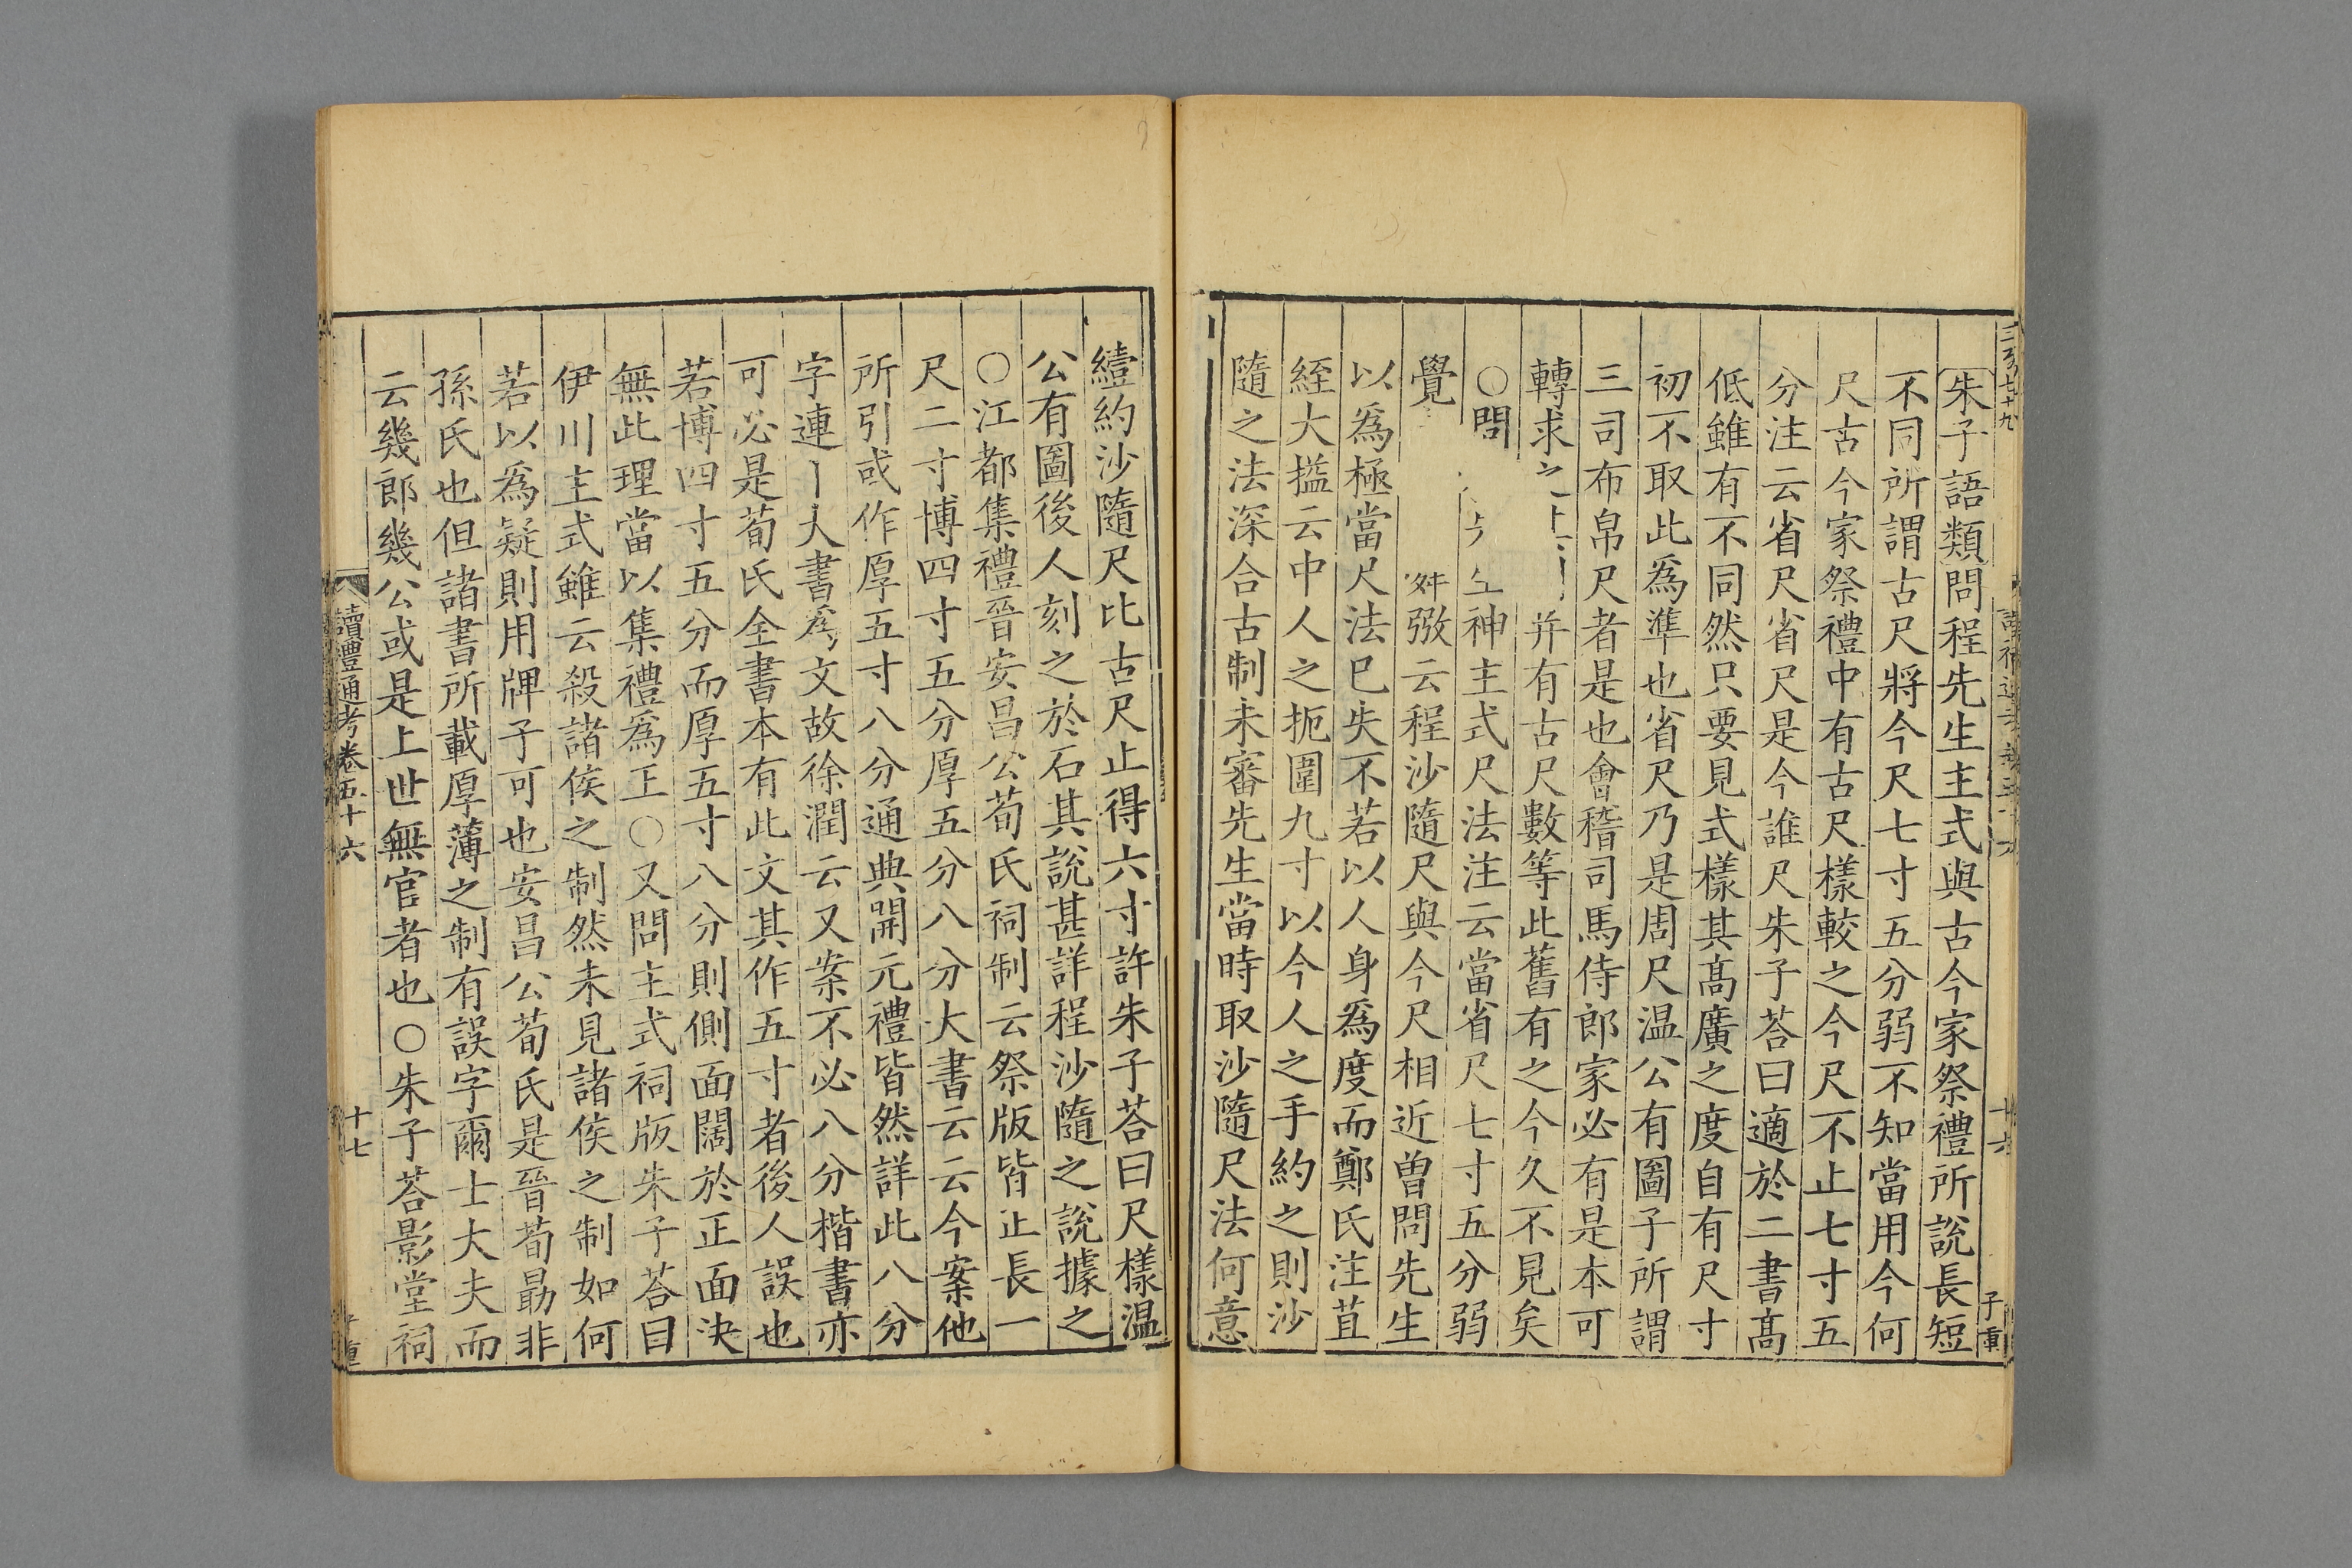 朱子語類問程先生主式與古今家祭禮所說長短
不同所謂古尺將今尺七寸五分弱不知當用今何
尺古今家祭禮中有古尺樣較之今尺不止七寸五
分注云省尺省尺是今誰尺朱子荅曰適於二書髙
低雖有不同然只要見式樣其髙廣之度自有尺寸
初不取此爲準也省尺乃是周尺温公有圖子所謂
三司布帛尺者是也會稽司馬侍郎家必有是本可
轉求之 并有古尺數等此舊有之今久不見矣
○問 神主式尺法注云當省尺七寸五分弱
覺 弢云程沙隨尺與今尺相近曾問先生
以爲極當尺法已失不若以人身爲度而鄭氏注苴
絰大搤云中人之扼圍九寸以今人之手約之則沙
隨之法深合古制未審先生當時取沙隨尺法何意
𦆯約沙隨尺比古尺止得六寸許朱子荅曰尺樣温
公有圖後人刻之於石其說甚詳程沙隨之說據之
○江都集禮晉安昌公荀氏祠制云祭版皆正長一
尺二寸博四寸五分厚五分八分大書云云今案他
所引或作厚五寸八分通典開元禮皆然詳此八分
字連 大書爲文故徐潤云又案不必八分楷書亦
可必是荀氏全書本有此文其作五寸者後人誤也
若博四寸五分而厚五寸八分則側面闊於正面決
無此理當以集禮爲正○又問主式祠版朱子荅曰
伊川主式雖云殺諸侯之制然未見諸侯之制如何
若以爲疑則用牌子可也安昌公荀氏是晉荀勗非
孫氏也但諸書所載厚薄之制有誤字爾士大夫而
云幾郎幾公或是上世無官者也○朱子荅影堂祠
讀禮通考卷五十六
十七